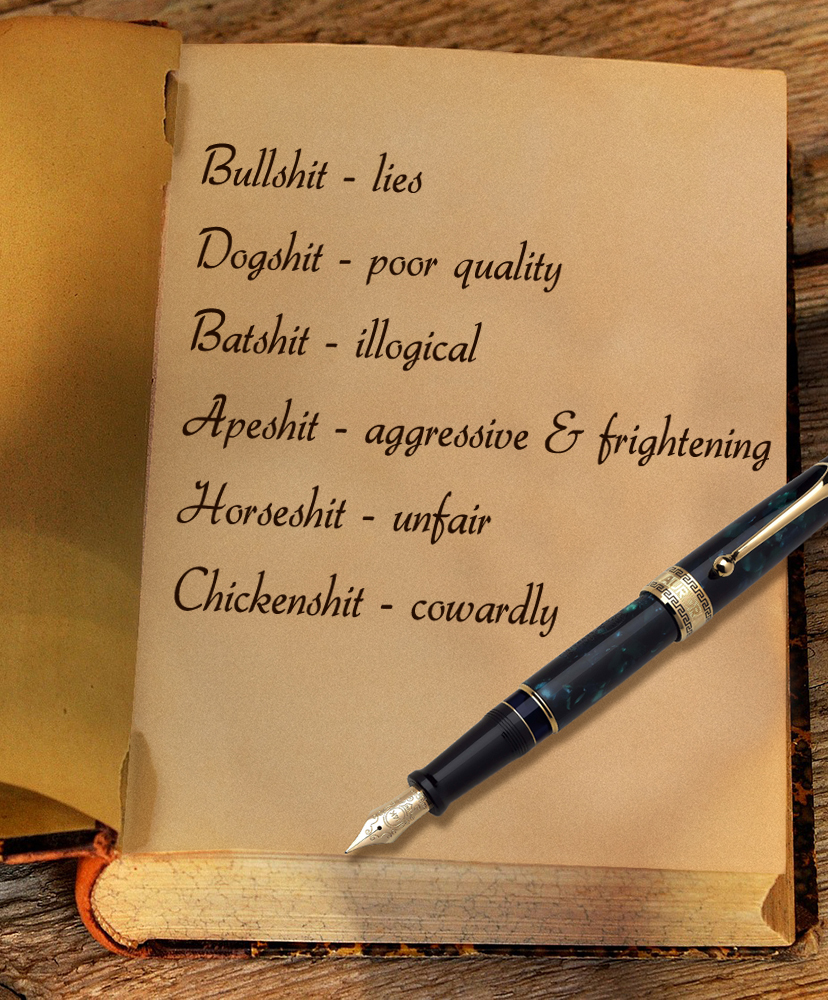 Bullshit - lies
Dogshit - poor quality
Batshit - illogical
Apeshit - aggressive & frightening
Horseshit - unfair
Chickenshit - cowardly